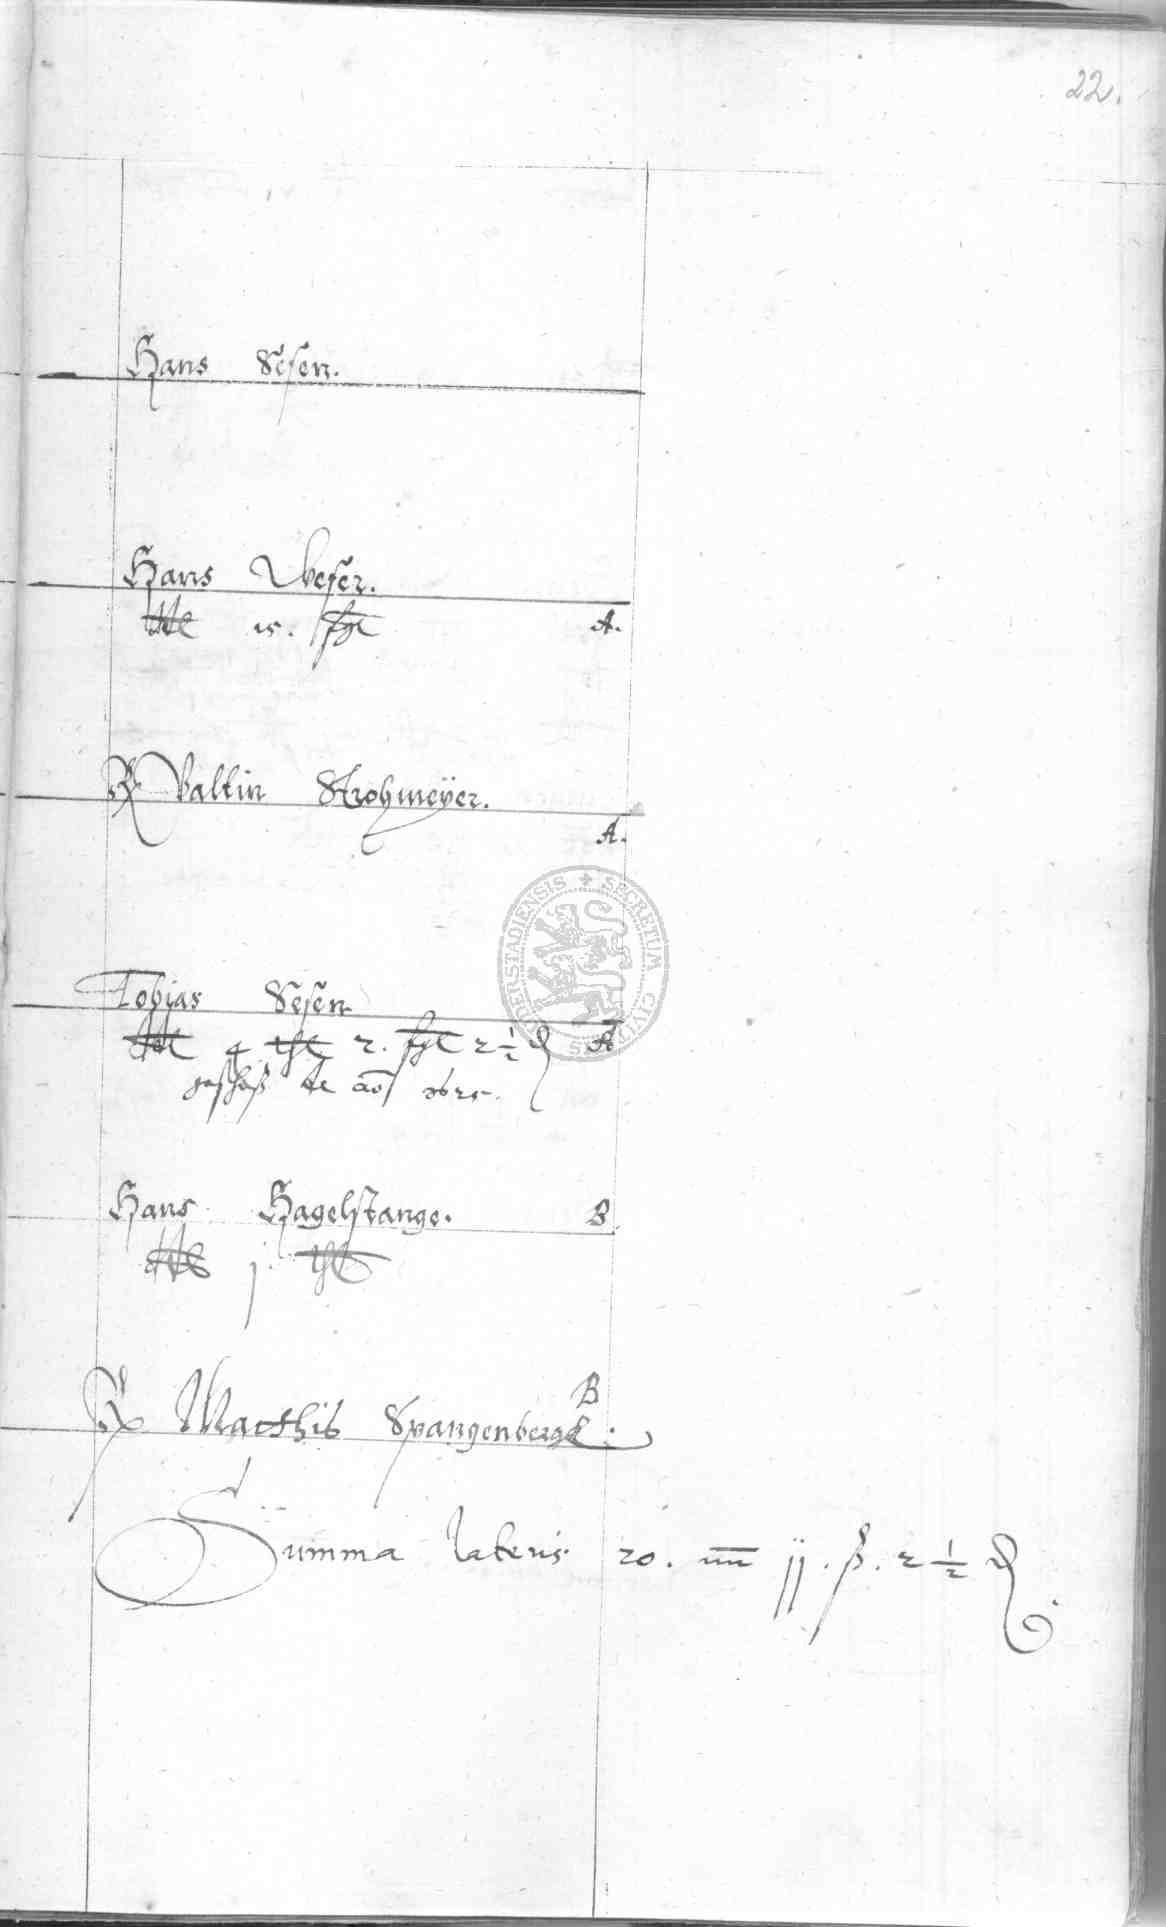 22.
Hans Sesen.
Hans Weser.
15. A.
Valtin Strohmeÿer.
A.
Tobias Sesen
4 2. 2½ A
geschoß de ao 1625.
Hans Hagelstange. B
j
B
Matthis Spangenbergk.
Summa lateris 20. jj. ß. 2½ ₰
SECRETUM CIVITATIS DUDERSTADIENSIS